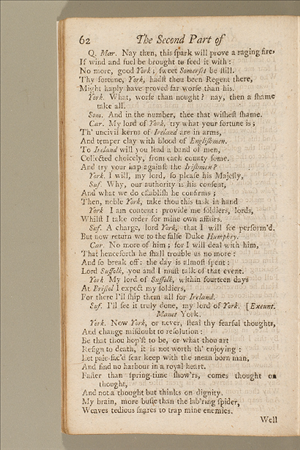 62 The Second Part of
Q. Mar. Nay then, this spark will prove a raging fire,
If wind and fuel be brought to feed it with:
No more, good York; sweet Somerset be still.
Thy fortune, York, hadst thou been Regent there,
Might haply have proved far worse than his.
York. What, worse than nought? nay, then a shame
take all.
Som. And in the number, thee that wishest shame.
Car. My lord of York, try what your fortune is;
Th' uncivil kerns of Ireland are in arms,
And temper clay with blood of Englishmen.
To Ireland will you lead a band of men,
Collected choicely, from each county some,
And try your hap against the Irishmen?
York. I will, my lord, so please his Majesty,
Suf. Why, our authority is his consent,
And what we do establish he confirms;
Then, noble York, take thou this task in hand
York I am content: provide me soldiers, lords,
Whilst I take order for mine own affairs.
Suf. A charge, lord York, that I will see perform'd.
But now return we to the false Duke Humphry.
Car. No more of him; for I will deal with him,
That henceforth he shall trouble us no more:
And so break off: the day is almost spent:
Lord Suffolk, you and I must talk of that event.
York My lord of Suffolk, within fourteen days
At Bristol I expect my soldiers,
For there I'll ship them all for Ireland.
Suf. I'll see it truly done, my lord of York. [Exeunt.
Manet York.
York. Now York, or never, steel thy fearful thoughts,
And change misdoubt to resolution:
Be that thou hop'st to be, or what thou art
Resign to death, it is not worth th' enjoying:
Let pale-fac'd fear keep with the mean born man,
And find no harbour in a royal heart.
Faster than spring-time show'rs, comes thought on
thought,
And not a thought but thinks on dignity.
My brain, more busie than the lab'ring spider,
Weaves tedious snares to trap mine enemies.
Well